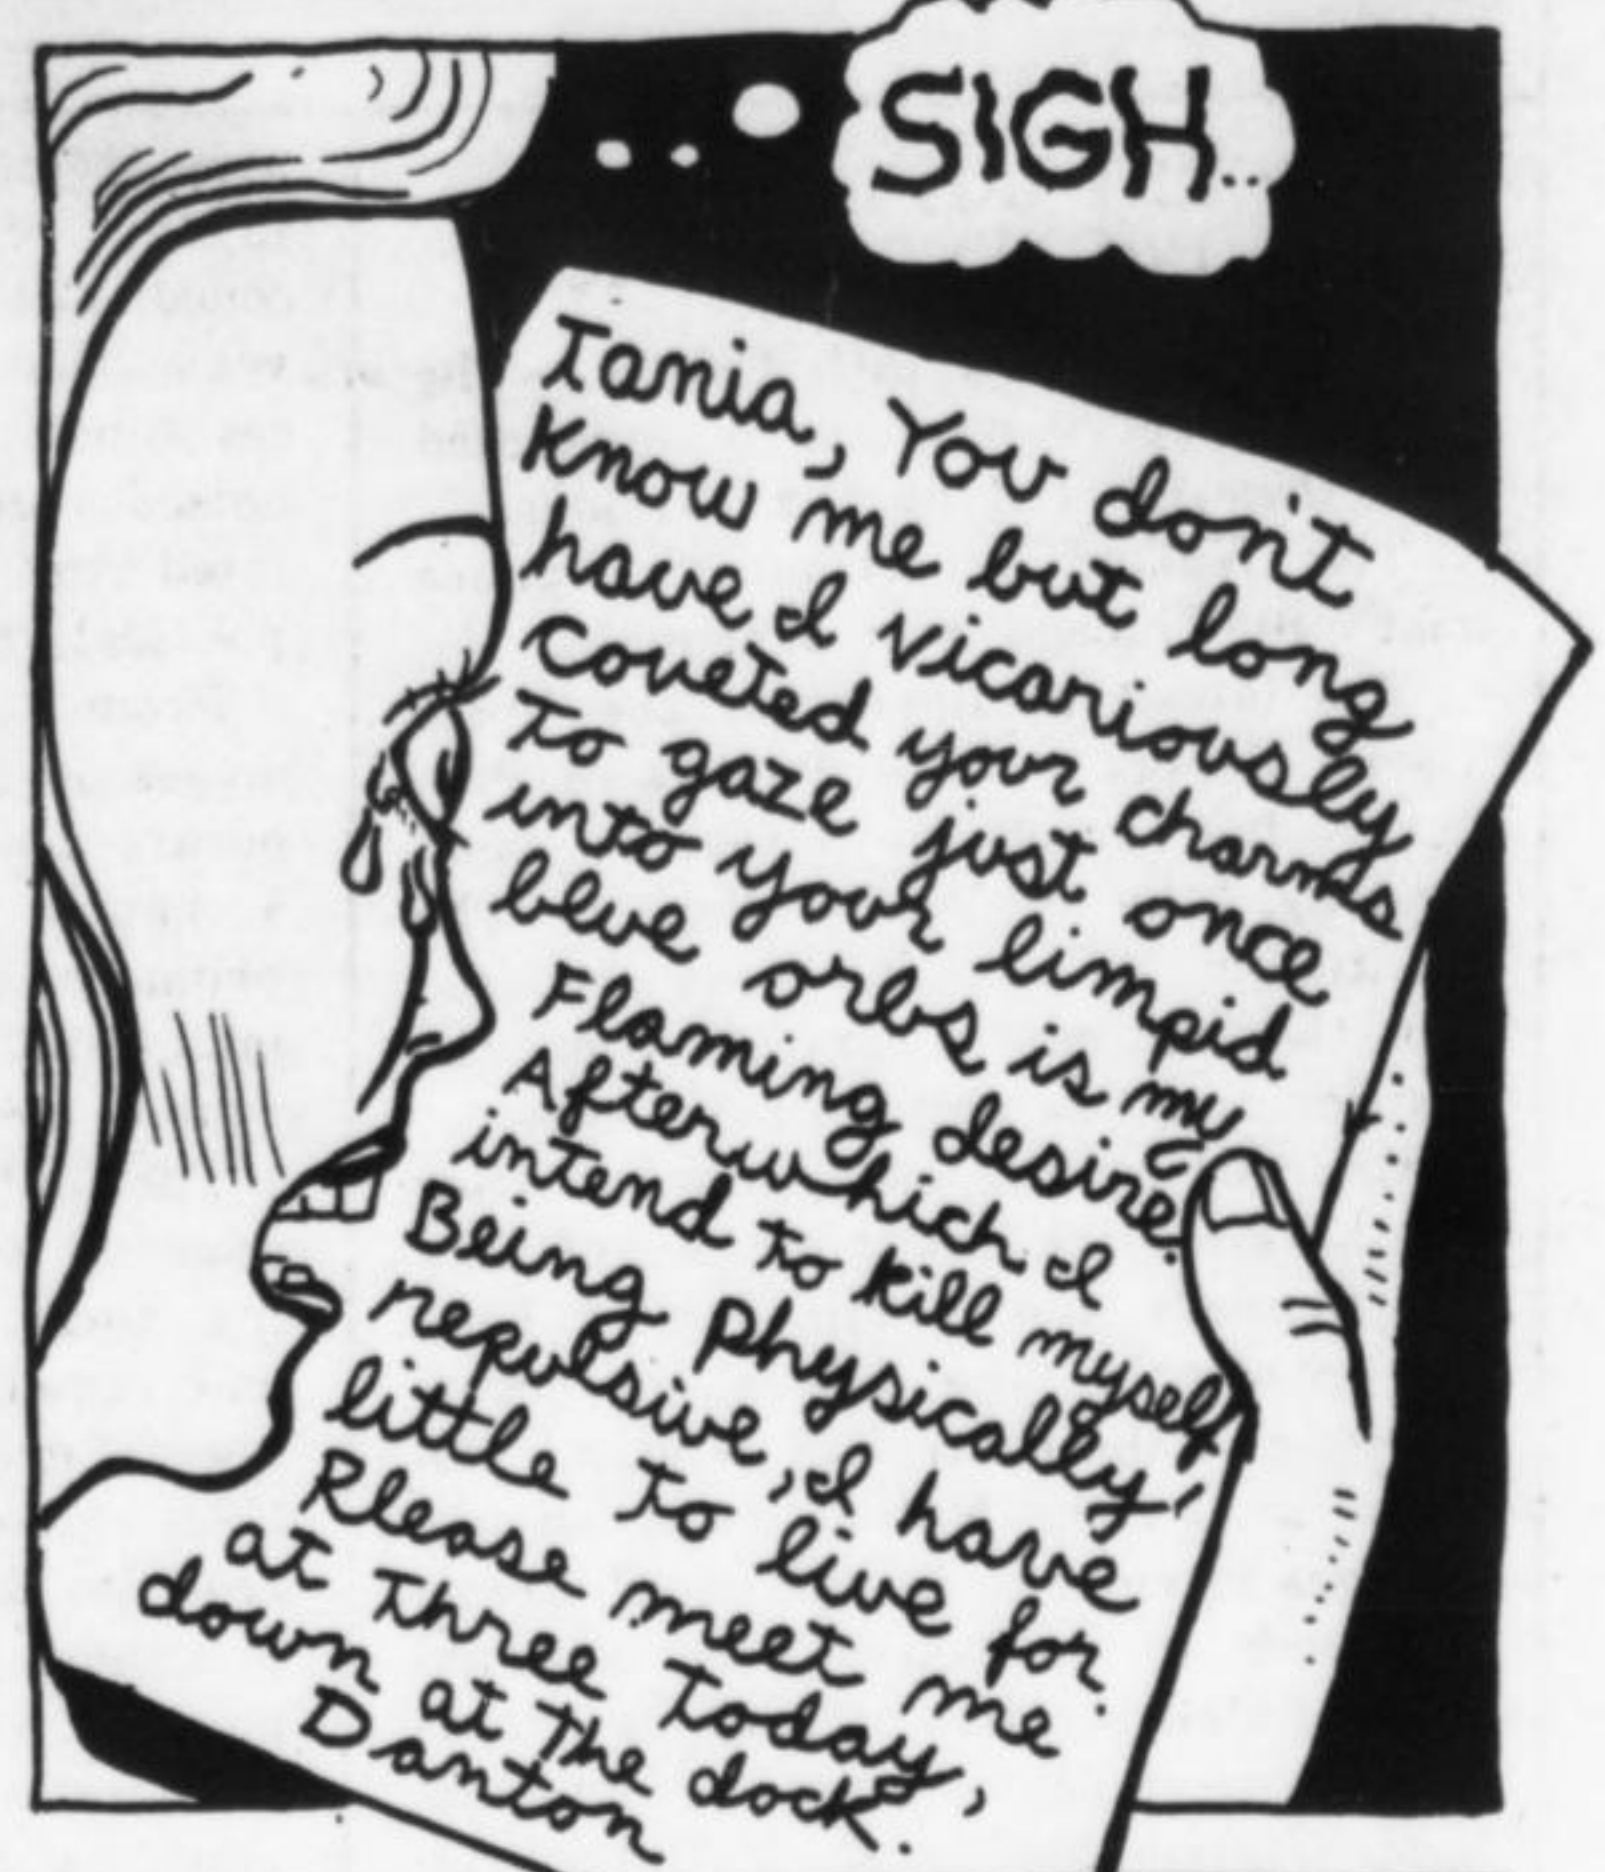 SIGH...
Tania, You don't
Know me but long
have I vicariously
coveted your charms
To gaze just once
into your limpid
blue orbs is my
Flaming desire.
Afterwhich I
intend to kill myself
Being physically
repulsive, I have
little to live for.
Please meet me
at three today,
down at the dock.
Danton